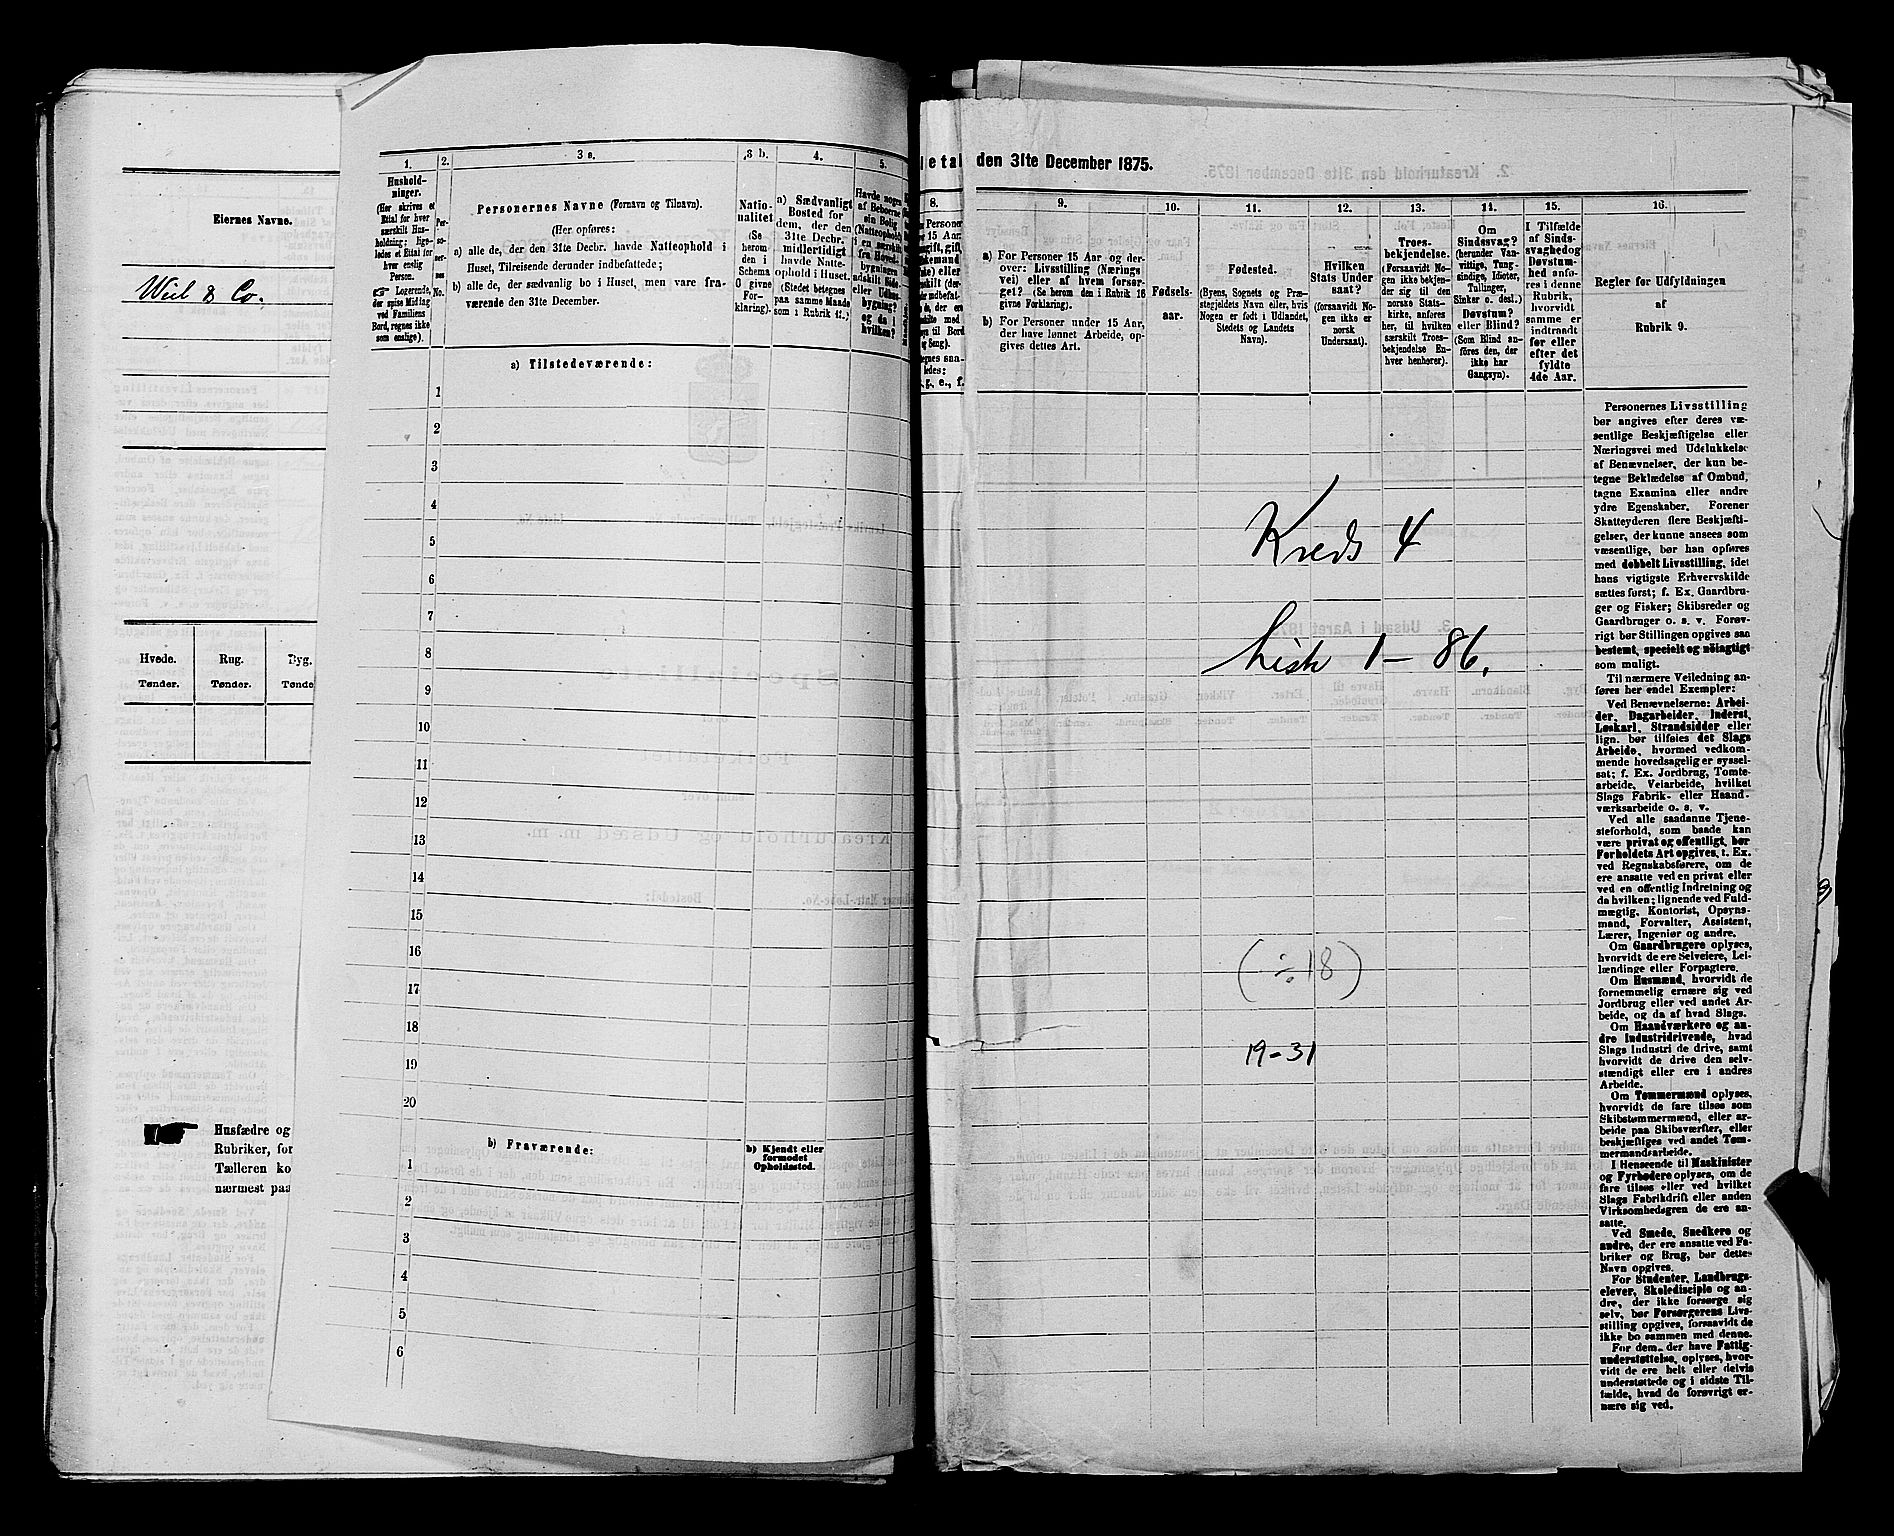 Eiernes Navne.
Weel & Co.
Hvede.
Rug.
Byg.
Tønder.
Tønder.
Tønde
Husfædre og
Rubriker, for
Tælleren ko
nærmest paa
1.
2.
3 a.
3 b.
4.
5.
Hushold-
ninger.
(Her skrives et
Ettal for hver
særskilt Hus-
holdning; lige-
ledes et Ettal for
hver enslig
Person.
☞ Logerende,
der spise Middag
ved Familiens
Bord, regnes ikke
som enslige).
Per-
so-
ner-
nes
No.
Personernes Navne (Fornavn og Tilnavn).
(Her opføres:
a) alle de, der den 31te Decbr. havde Natteophold i
Huset, Tilreisende derunder indbefattede;
b) alle de, der sædvanlig bo i Huset, men vare fra-
værende den 31te December.
Natio-
nalitet
(Se
herom
den i
Schema
O givne
For-
klaring).
a) Sædvanligt
Bosted for
dem, der den
31te Decbr.
midlertidigt
havde Natte-
ophold i Huset.
(Stedet betegnes
paa samme Maade
som i Rubrik 11.)
Havde nogen
af Beboerne
sin Bolig
(Natteophold)
i en særskilt
fra Hoved-
bygningen
adskilt Side-
eller Ud-
bygning?
og da i
hvilken?
a) Tilstedeværende:
1
2
3
4
5
6
7
8
9
10
11
12
13
14
15
16
17
18
19
20
b) Fraværende:
b) Kjendt eller
formodet
Opholdssted.
1
2
3
4
5
6
letal den 31te December 1875.
8.
9.
10.
11.
12.
13.
14.
15.
16.
a) For Personer 15 Aar og der-
over: Livsstilling (Nærings
vei) eller af hvem forsør-
get? (Se herom den i Rubrik 16
givne Forklaring).
b) For Personer under 15 Aar,
der have lønnet Arbeide, op-
gives dettes Art.
Fødsels-
aar.
Fødested.
(Byens, Sognets og Præ-
stegjeldets Navn eller, hvis
Nogen er født i Udlandet,
Stedets og Landets
Navn).
Hvilken
Stats Under
saat?
(forsaavidt No-
gen ikke er
norsk
Undersaat).
Troes-
bekjendelse.
(Forsaavidt No-
gen ikke bekjen-
der sig til den
norske Stats-
kirke, anføres
her, til hvilken
særskilt Troes-
bekjendelse En-
hver henhører).
Om
Sindssvag?
(herunder Van-
vittige, Tung-
sindige, Idioter,
Tullinger,
Sinker o. desl.)
Døvstum?
eller Blind?
(Som Blind an-
føres den, der
ikke har
Gangsyn).
I Tilfælde
af Sinds-
svaghed og
Døvstum-
hed anfø-
res i denne
Rubrik,
hvorvidt
samme er
indtraadt
før eller
efter det
fyldte
4de Aar.
Regler for Udfyldningen
af
Rubrik 9.
Kreds 4
Liste 1 – 86.
(÷18)
19–31
Personernes Livsstilling
bør angives efter deres væ-
sentlige Beskjæftigelse eller
Næringsvei med Udelukkelse
af Benævnelser, der kun be-
tegne Beklædelse af Ombud,
tagne Examina eller andre
ydre Egenskaber. Forener
Skatteyderen flere Beskjæfti-
gelser, der kunne ansees som
væsentlige, bør han opføres
med dobbelt Livsstilling, idet
hans vigtigste Erhvervskilde
sættes først; f. Ex. Gaardbru-
ger og Fisker; Skibsreder og
Gaardbruger o. s. v. Forøv-
rigt bør Stillingen opgives saa
bestemt, specielt og nöiagtigt
som muligt.
Til nærmere Veiledning an-
føres her endel Exempler:
Ved Benævnelserne: Arbei-
der, Dagarbeider, Inderst,
Løskarl, Strandsidder eller
lign. bør tilføies det Slags
Arbeide, hvormed vedkom-
mende hovedsagelig er syssel-
sat; f. Ex. Jordbrug, Tomte-
arbeide, Veiarbeide, hvilket
Slags Fabrik- eller Haand-
værksarbeide o. s. v.
Ved alle saadanne Tjene-
steforhold, som baade kan
være privat og offentligt, bør
Forholdets Art opgives, t. Ex.
ved Regnskabsførere, om de
ere ansatte ved en privat eller
ved en offentlig Indretning og
da hvilken; lignende ved Fuld-
mægtig, Kontorist, Opsyns-
mand, Forvalter, Assistent,
Lærer, Ingeniør og andre.
Om Gaardbrugere oplyses,
hvorvidt de ere Selveiere, Lei-
lændinge eller Forpagtere.
Om Husmænd, hvorvidt de
fornemmelig ernære sig ved
Jordbrug eller ved andet Ar-
beide, og da af hvad Slags.
Om Haandværkere og an-
dre Industridrivende, hvad
Slags Industri de drive, samt
hvorvidt de drive den selv-
stændigt eller ere i andres
Arbeide.
Om Tømmermænd oplyses,
hvorvidt de fare tilsøs som
Skibstømmermænd, eller ar-
beide paa Skibsværfter, eller
beskjæftiges ved andet Tøm-
mermandsarbeide.
I Henseende til Maskinister
og Fyrbødere oplyses, om de
fare tilsøs eller ved hvilket
Slags Fabrikdrift eller anden
Virksomhedsgren de ere an-
satte.
Ved Smede, Snedkere og
andre, der ere ansatte ved Fa-
briker og Brug, bør dettes
Navn opgives.
For Studenter, Landbrugs-
elever, Skoledisciple og an-
dre, der ikke forsørge sig
selv, bør Forsørgerens Livs-
stilling opgives, forsaavidt de
ikke bo sammen med denne.
For dem, der have Fattig-
understøttelse, oplyses, hvor-
vidt de ere helt eller delvis
understøttede og i sidste Til-
fælde, hvad de forøvrigt er-
nære sig ved.